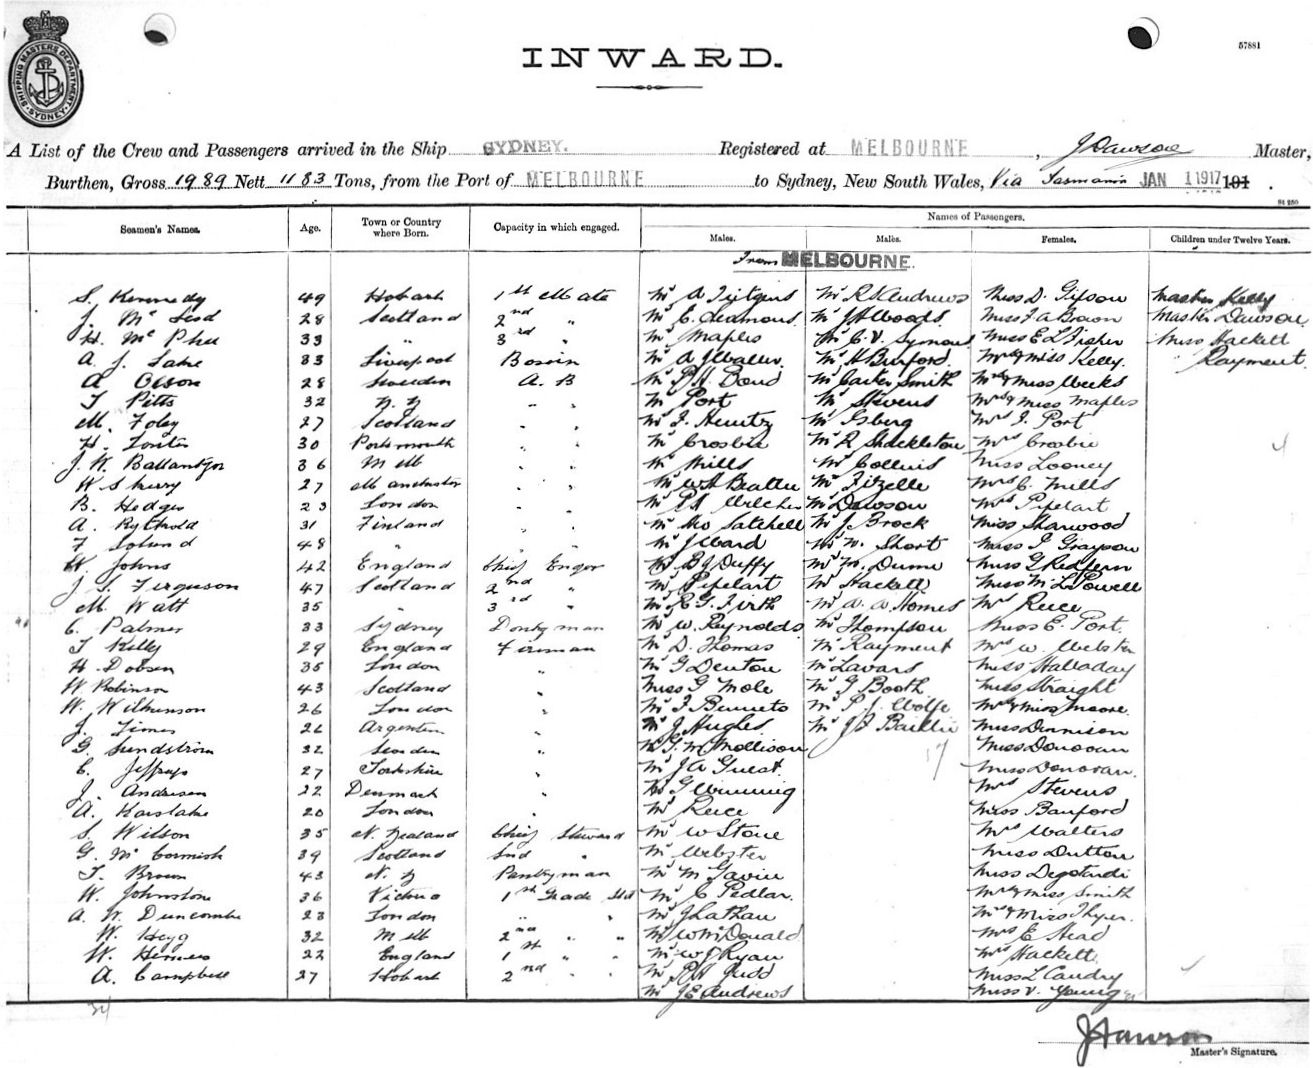 57881
SHIPPING MASTERS DEPARTMENT
SYDNEY
INWARD.
A List of the Crew and Passengers arrived in the Ship SYDNEY. Registered at MELBOURNE, J Dawson Master,
Burthen, Gross 1989 Nett 1183 Tons, from the Port of MELBOURNE to Sydney, New South Wales, Via Tasmania JAN 1 1917 191 .
St 250
Seamen's Names. Age. Town or Country where Born. Capacity in which engaged. Names of Passengers.
Males. Males. Females. Children under Twelve Years.
From MELBOURNE.
S. Kennedy 49 Hobart 1st Mate Mr A Tietgens Mr R K Andrews Miss D. Gipson Master Kelly
J. Mc Leod 28 Scotland 2nd " Mr E. Seamons Mr J H Woods Miss F. A Bown Master Dawson
H. Mc Phee 33 " 3rd " Mr Maples Mr C. V. Symons Miss E L Fisher Miss Hackett
A. J. Lake 33 Liverpool Bosun Mr A J Waller Mr H Burford Mrs & Miss Kelly. Rayment
A Olson 28 Sweden A. B Mr P H Bond Mr Carter Smith Mrs & Miss Weeks
T Pitts 32 N. Z " " Mr Port Mr Stevens Mrs & Miss Maples
M. Foley 27 Scotland " " Mr F. Heintz Mr Isberg Mrs J. Port
H. 30 Portsmouth " " Mr Crosbie Mr R Shackleton Mrs Crosbie
J. W. Ballantyne 36 Melb " " Mr Mills Mr Collins Miss Looney
W Skerry 27 Manchester " " Mr W H Beattie Mr Fizelle Mrs C. Mills
B. Hedges 23 London " " Mr P A Wilcher Mr Dawson Mrs Pipelart
A. 31 Finland " " Mr Satchell Mr J. Brock Miss Sharwood
F 48 " " " Mr J Ward Mr W. Short Miss J Grayson
W Johns 42 England Chief Enger Mr B J Duffy Mr M. Dunn Miss G Redfern
J. S. Ferguson 47 Scotland 2nd " Mr Pipelart Mr Hackett Miss M. L Powell
M. Watt 35 " 3rd " Mr R G. Firth Mr A. A Homes Mrs Reice
C. Palmer 33 Sydney Donkyman Mr W. Reynolds Mr Thompson Miss E. Port.
T Kelly 29 England Fireman Mr D. Thomas Mr Rayment Mrs W. Webster
H Dobson 35 London " Mr G Denton Mr Lavars Miss Halladay
W Robinson 43 Scotland " Miss G Mole Mr G Booth Miss Straight
W. Wilkinson 26 London " Mr F Bennets Mr P. J. Wolfe Mrs & Miss Moore.
J. 26 Argentin " Mr J Hughes Mr J. J Miss Dennison
G Sundstrom 32 Sweden " Mr G. M Mollison Miss Donovan
17
C. Jeffreys 27 Yorkshire " Mr J A Guest Miss Donovan.
J. Andresen 22 Denmark " Mr G Wunning Mrs Stevens
A. Karslake 20 London " Mr Reice Miss Banford
S. Wilson 35 N. Zealand Chief Steward Mr W Stone Mrs Walters
G. Mc Cormick 39 Scotland 2nd " Mr Webster Miss Dutton
T. Brown 43 N. Z Pantryman Mr M Gavin Miss Degotardi
W. Johnstone 36 Victoria 1st Grade Std Mr C Pedlar. Mrs & Miss Smith
A. W. Duncombe 23 London " " Mr J Lathan Mrs & Miss Thyer.
W. Hegg 32 Melb 2nd " " Mr W McDonald Mrs E Head
W. 22 England 1st " " Mr W J Ryan Mrs Hackett
A. Campbell 27 Hobart 2nd " " Mr P. H Judd Miss L Candry
Mr J E Andrews Miss V. Young
34
J Dawson
Master's Signature.